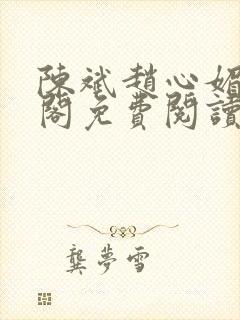 陳斌趙心媚
閣免費閱讀
龔夢雪